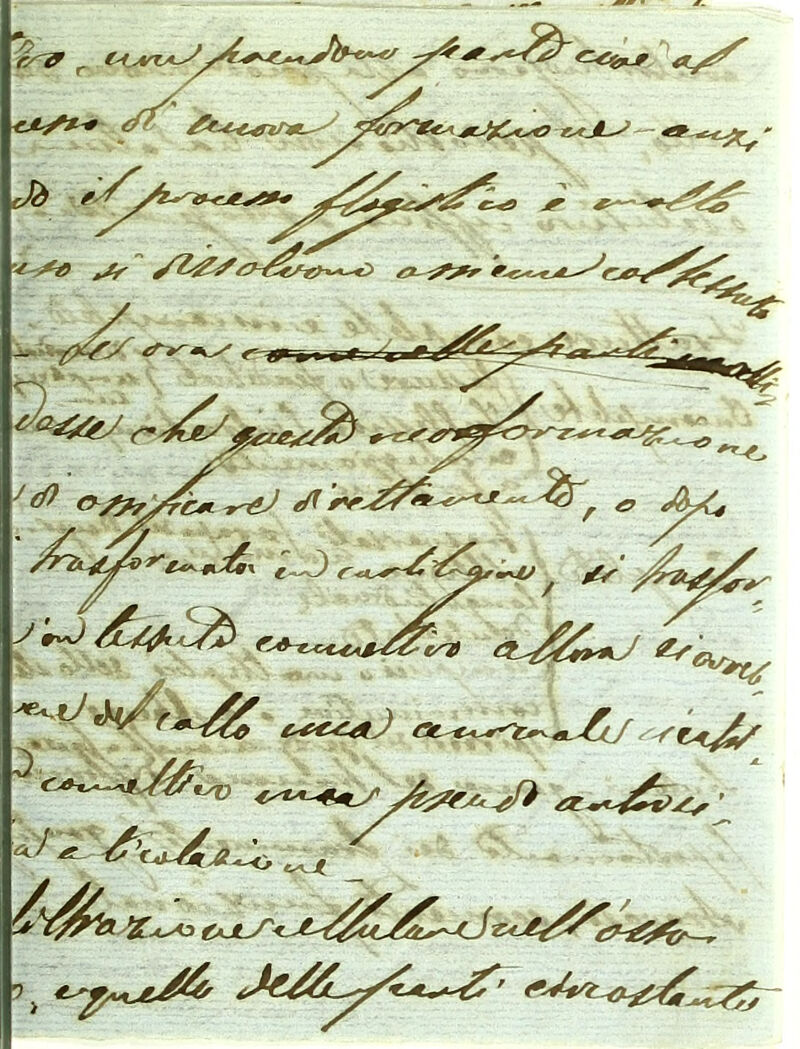 non prendono parte cioè al
cesso di nuova formazione - anzi
do il processo flogistico è molto
uso si dissolvono assieme col tessuto
Se ora come nelle parti molli
desse che questa neoformazione
di ossificare direttamente, o dopo
trasformata in cartilagine, si trasfor-
in tessuto connettivo allora si avreb-
del callo una anormale cicatri-
connettivo una pseudo artrosi-
a articolazione
filtrazione cellulare nell'osso
, e quella delle parti circostanti